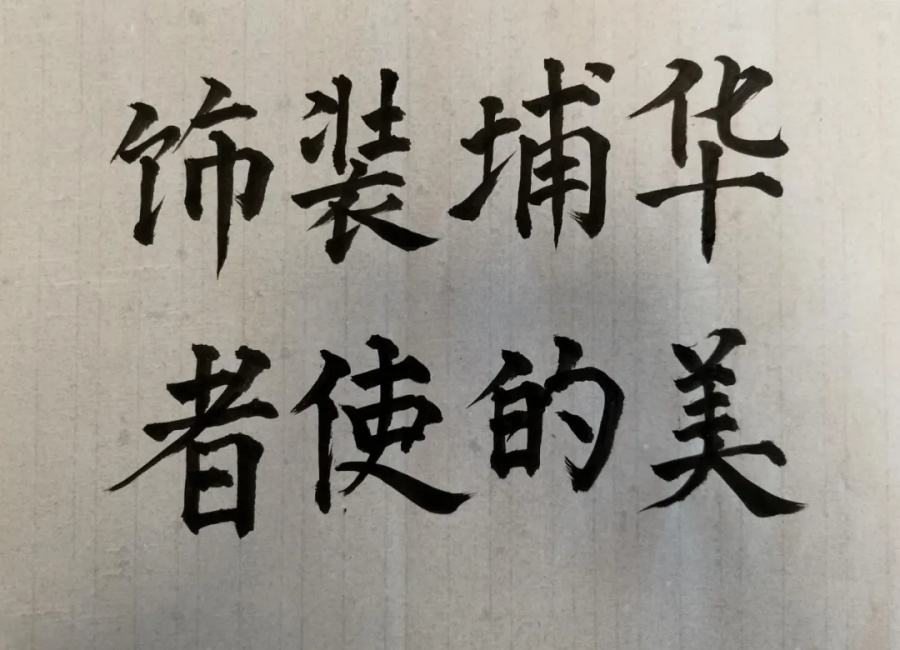 华埔装饰
美的使者